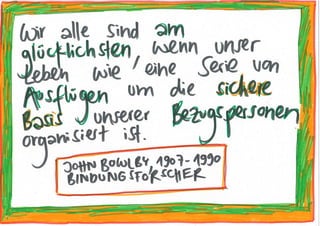 Wir alle sind am
glücklichsten, wenn unser
Leben wie eine Serie von
Ausflügen um die sichere
Basis unserer Bezugspersonen
organisiert ist.
JOHN BOWLBY, 1907-1990
BINDUNGSFORSCHER